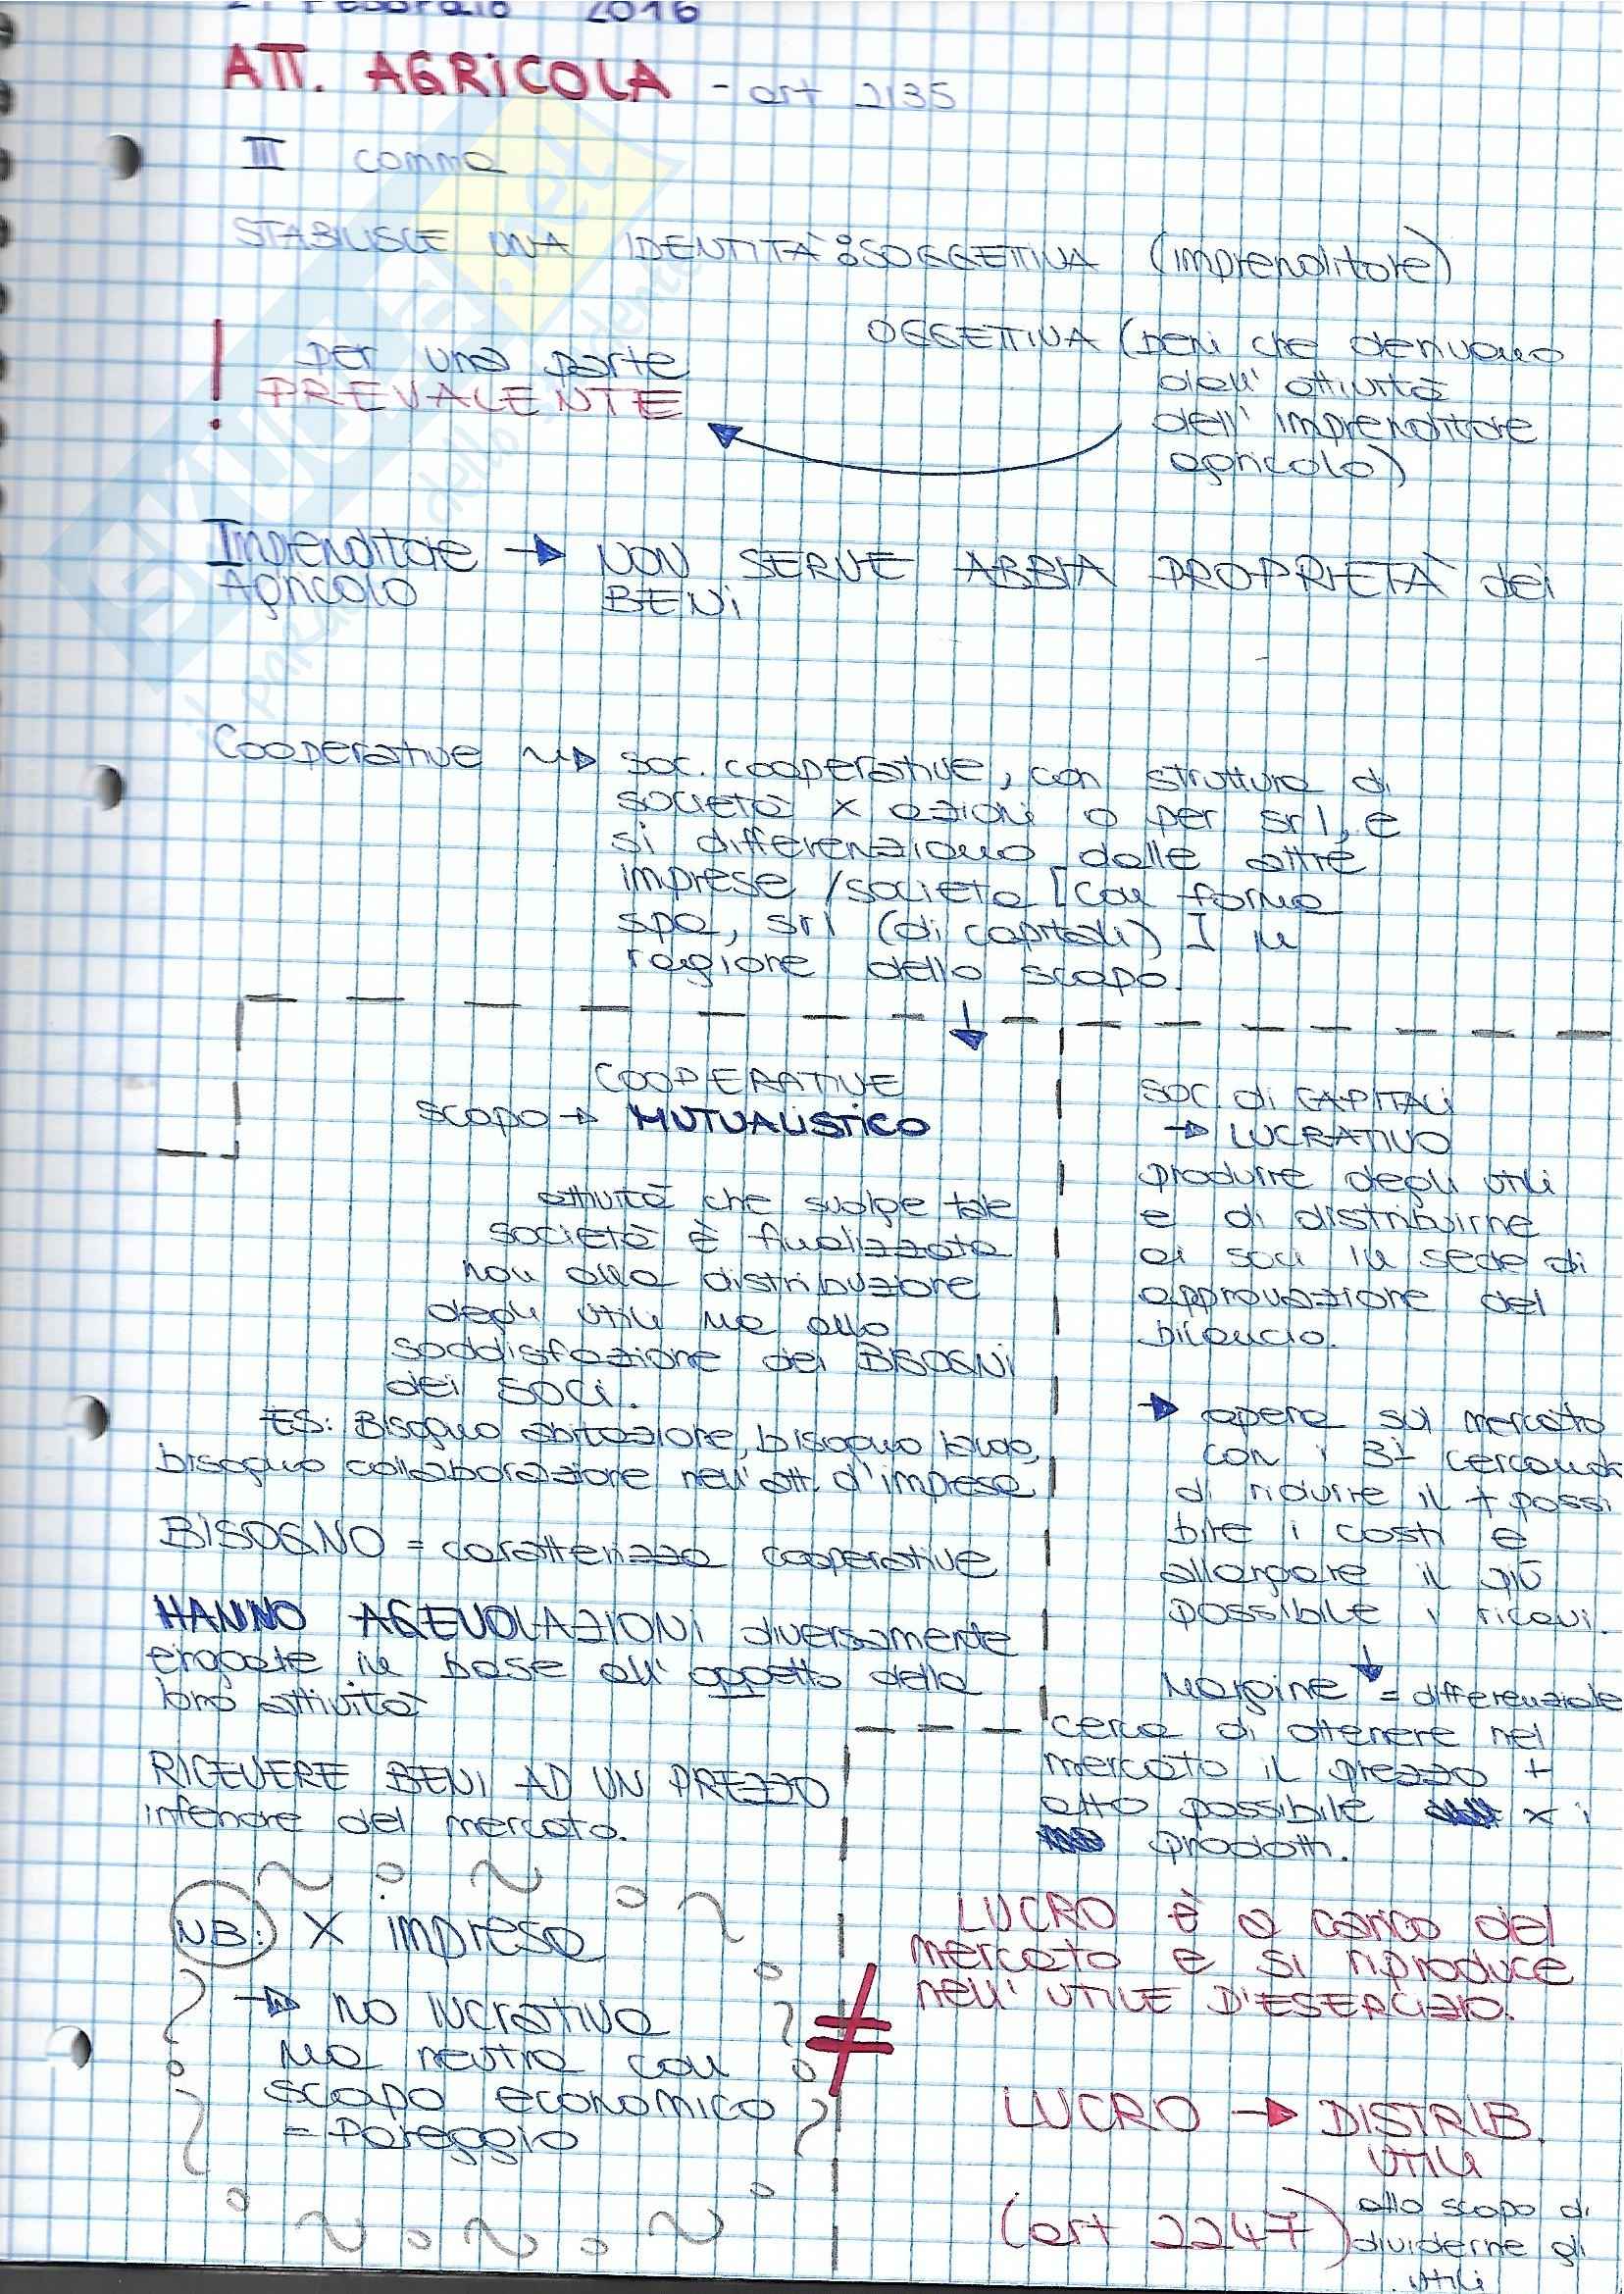 Febbraio 2016
ATT. AGRICOLA - art 2135
III comma
STABILISCE UNA IDENTITÀ SOGGETTIVA (imprenditore)
OGGETTIVA (beni che derivano
dall' attività
dell' imprenditore
agricolo)
! per una parte
PREVALENTE
Imprenditore → NON SERVE ABBIA PROPRIETÀ dei
Agricolo BENI
Cooperative → soc. cooperative, con struttura di
società x azioni o per srl, e
si differenziano dalle altre
imprese /società [con forma
spa, srl (di capitali)] in
ragione dello scopo.
COOPERATIVE
scopo → MUTUALISTICO
attività che svolge tale
società è finalizzata
non alla distribuzione
degli utili ma alla
soddisfazione dei BISOGNI
dei SOCI.
ES: Bisogno abitazione, bisogno lavoro,
bisogno collaborazione nell'att. d'impresa
BISOGNO = caratterizza cooperative
HANNO AGEVOLAZIONI diversamente
erogate in base all' oggetto della
loro attività
RICEVERE BENI AD UN PREZZO
inferiore del mercato.
NB: X impresa
→ NO lucrativa
ma neutra con
scopo economico
= Pareggio
SOC. di CAPITALI
→ LUCRATIVO
produrre degli utili
e di distribuirne
ai soci in sede di
approvazione del
bilancio.
→ opera sul mercato
con i 3i cercando
di ridurre il + possi
bile i costi e
allargare il più
possibile i ricavi.
Margine = differenziale
cerca di ottenere nel
mercato il prezzo +
alto possibile x i
prodotti.
≠
LUCRO È a carico del
mercato e si riproduce
nell' UTILE D'ESERCIZIO.
LUCRO → DISTRIB.
UTILI
(art 2247) allo scopo di
dividerne gli
utili
SKUOLA.net
il paradiso dello studente